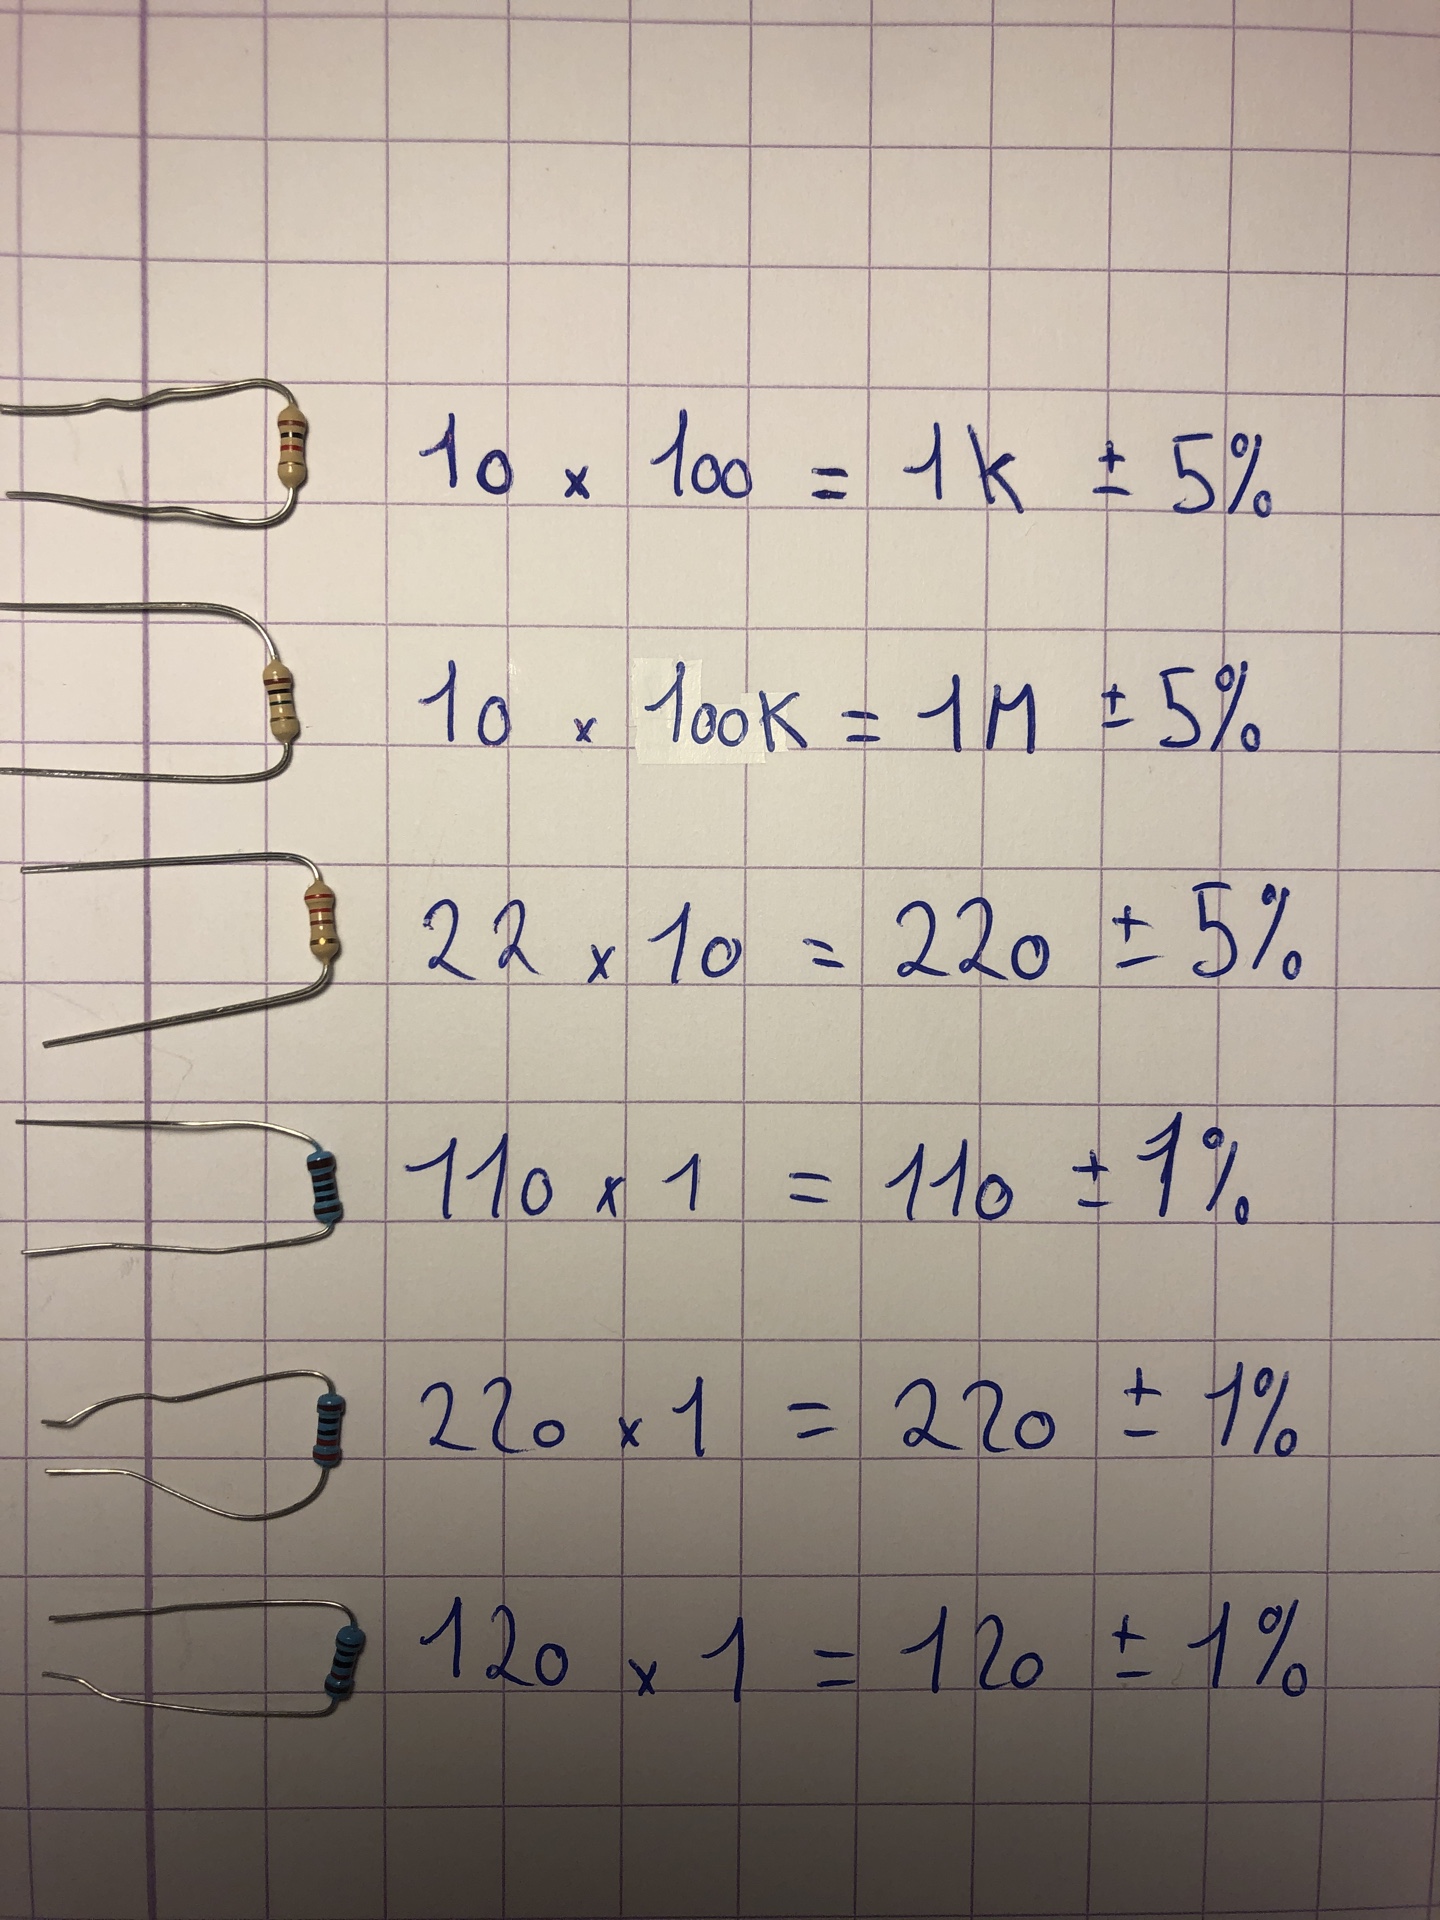 10 x 100 = 1K ± 5%
10 x 100K = 1M ± 5%
22 x 10 = 220 ± 5%
110 x 1 = 110 ± 1%
220 x 1 = 220 ± 1%
120 x 1 = 120 ± 1%